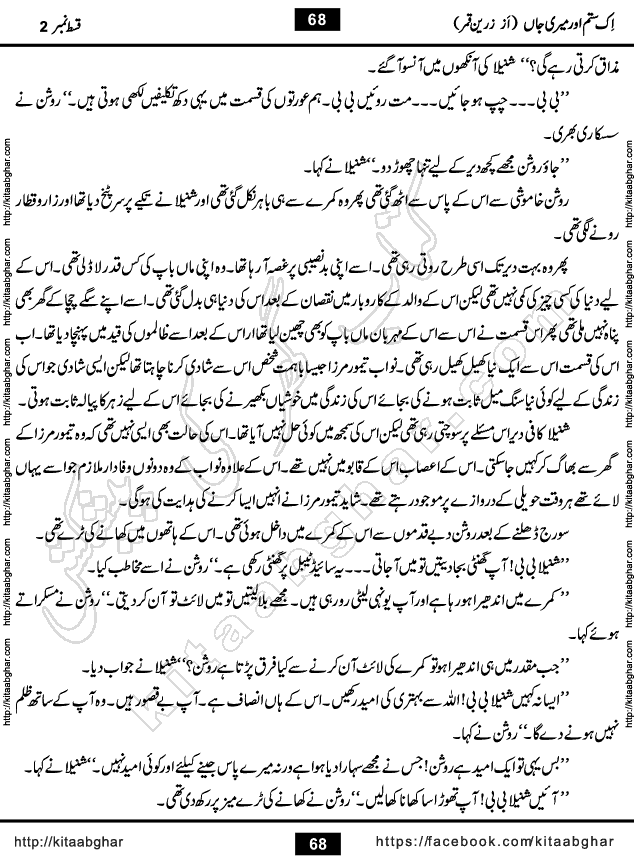 اِک ستم اور میری جاں (از زرین قمر)
68
قسط نمبر 2
مذاق کرتی رہے گی؟‘‘ شنیلا کی آنکھوں میں آنسو آگئے۔
’’بی بی۔۔۔ چپ ہو جائیں۔۔۔ مت روئیں بی بی۔ ہم عورتوں کی قسمت میں یہی دکھ تکلیفیں لکھی ہوتی ہیں۔‘‘ روشن نے
سسکاری بھری۔
’’جاؤ روشن مجھے کچھ دیر کے لیے تنہا چھوڑ دو۔‘‘ شنیلا نے کہا۔
روشن خاموشی سے اس کے پاس سے اٹھ گئی تھی پھر وہ کمرے سے ہی باہر نکل گئی تھی اور شنیلا نے تکیے پر سر پٹخ دیا تھا اور زار و قطار
رونے لگی تھی۔
پھر وہ بہت دیر تک اسی طرح روتی رہی تھی۔ اسے اپنی بدنصیبی پر غصہ آ رہا تھا۔ وہ اپنی ماں باپ کی کس قدر لاڈلی تھی۔ اس کے
لیے دنیا کی کسی چیز کی کمی نہیں تھی لیکن اس کے والد کے کاروبار میں نقصان کے بعد اس کی دنیا ہی بدل گئی تھی۔ اسے اپنے سگے چچا کے گھر بھی
پناہ نہیں ملی تھی پھر اس قسمت نے اس سے اس کے مہربان ماں باپ کو بھی چھین لیا تھا اور اس کے بعد اسے ظالموں کی قید میں پہنچا دیا تھا۔ اب
اس کی قسمت اس سے ایک نیا کھیل کھیل رہی تھی۔ نواب تیمور مرزا جیسا باہمت شخص اس سے شادی کرنا چاہتا تھا لیکن ایسی شادی جو اس کی
زندگی کے لیے کوئی نیا سنگ میل ثابت ہونے کی بجائے اس کی زندگی میں خوشیاں بکھیرنے کی بجائے اس کے لیے زہر کا پیالہ ثابت ہوتی۔
شنیلا کافی دیر اس مسئلے پر سوچتی رہی تھی لیکن اس کی سمجھ میں کوئی حل نہیں آیا تھا۔ اس کی حالت بھی ایسی نہیں تھی کہ وہ تیمور مرزا کے
گھر سے بھاگ کر کہیں جا سکتی۔ اس کے اعصاب اس کے قابو میں نہیں تھے۔ اس کے علاوہ نواب کے وہ دونوں وفادار ملازم جو اسے یہاں
لائے تھے ہر وقت حویلی کے دروازے پر موجود رہتے تھے۔ شاید تیمور مرزا نے انہیں ایسا کرنے کی ہدایت کی ہوگی۔
سورج ڈھلنے کے بعد روشن دبے قدموں سے اس کے کمرے میں داخل ہوئی تھی۔ اس کے ہاتھوں میں کھانے کی ٹرے تھی۔
’’شنیلا بی بی! آپ گھنٹی بجا دیتیں تو میں آ جاتی۔۔۔ یہ سائیڈ ٹیبل پر گھنٹی رکھی ہے۔‘‘ روشن نے اسے مخاطب کیا۔
’’کمرے میں اندھیرا ہو رہا ہے اور آپ یونہی لیٹی رو رہی ہیں۔ مجھے بلا لیتیں تو میں لائٹ تو آن کر دیتی۔‘‘ روشن نے مسکراتے
ہوئے کہا۔
’’جب مقدر میں ہی اندھیرا ہو تو کمرے کی لائٹ آن کرنے سے کیا فرق پڑتا ہے روشن؟‘‘ شنیلا نے جواب دیا۔
’’ایسا نہ کہیں شنیلا بی بی! اللہ سے بہتری کی امید رکھیں۔ اس کے ہاں انصاف ہے۔ آپ بے قصور ہیں۔ وہ آپ کے ساتھ ظلم
نہیں ہونے دے گا۔‘‘ روشن نے کہا۔
’’بس یہی تو ایک امید ہے روشن! جس نے مجھے سہارا دیا ہوا ہے ورنہ میرے پاس جینے کیلئے اور کوئی امید نہیں۔‘‘ شنیلا نے کہا۔
’’آئیں شنیلا بی بی! آپ تھوڑا سا کھانا کھالیں۔‘‘ روشن نے کھانے کی ٹرے میز پر رکھ دی تھی۔
http://kitaabghar.com http://kitaabghar.com http://kitaabghar.com http://kitaabghar.com http://kitaabghar.com http://kitaabghar.com
http://kitaabghar.com http://kitaabghar.com http://kitaabghar.com http://kitaabghar.com http://kitaabghar.com http://kitaabghar.com
کتاب گھر کی پیشکش
kitaabghar.com
http://kitaabghar
68
https://facebook.com/kitaabghar